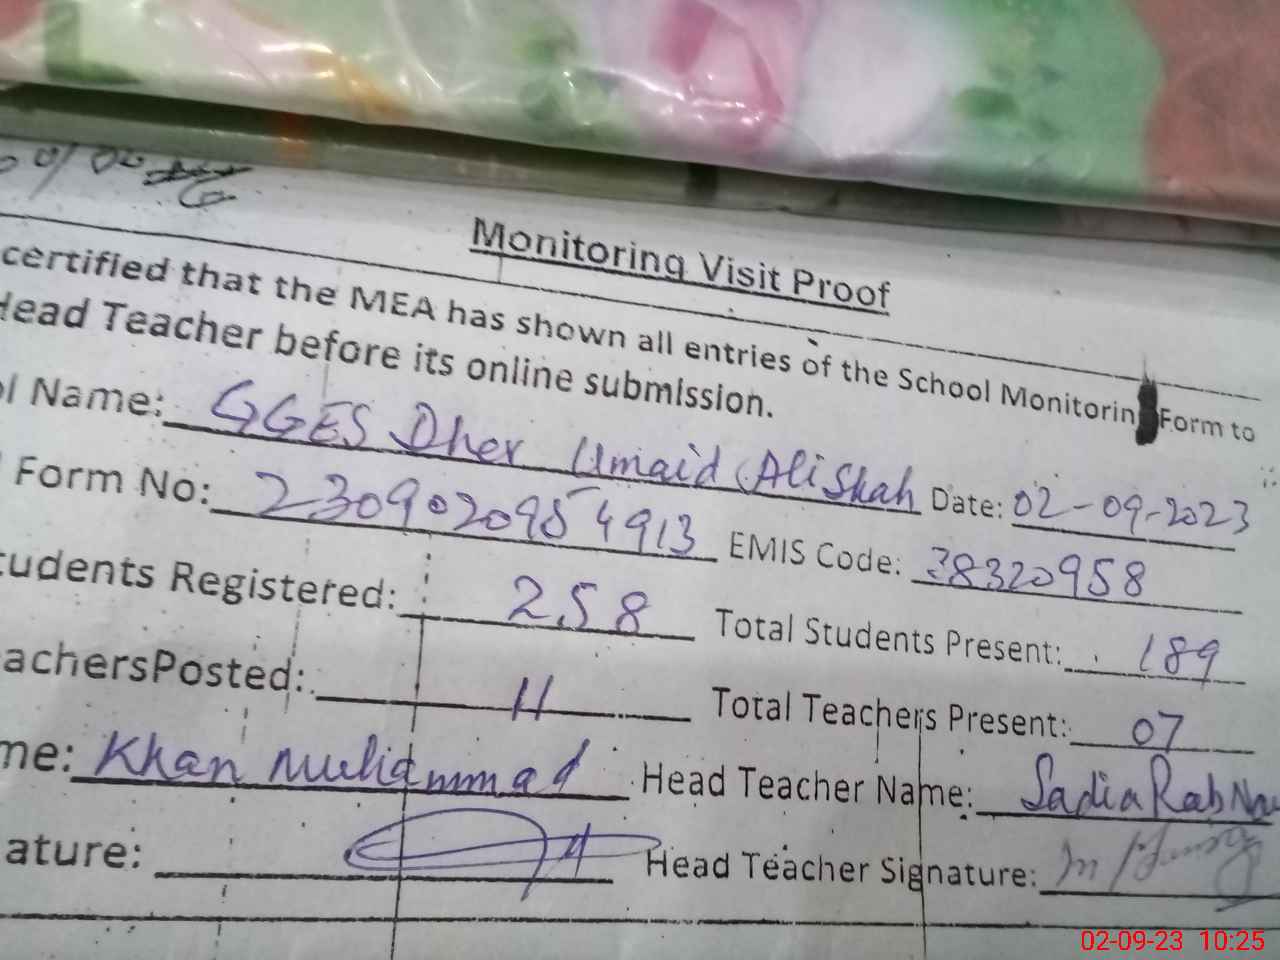 Monitoring Visit Proof
certified that the MEA has shown all entries of the School Monitorin Form to
Head Teacher before its online submission.
ol Name: GGES Dher Umaid Ali Shah Date: 02-09-2023
Form No: 2309020954913 EMIS Code: 38320958
tudents Registered: 258 Total Students Present: 189
achersPosted: 11 Total Teachers Present: 07
me: Khan Muhammad Head Teacher Name: Sadia Rab Na
ature: Head Teacher Signature:
02-09-23 10:25